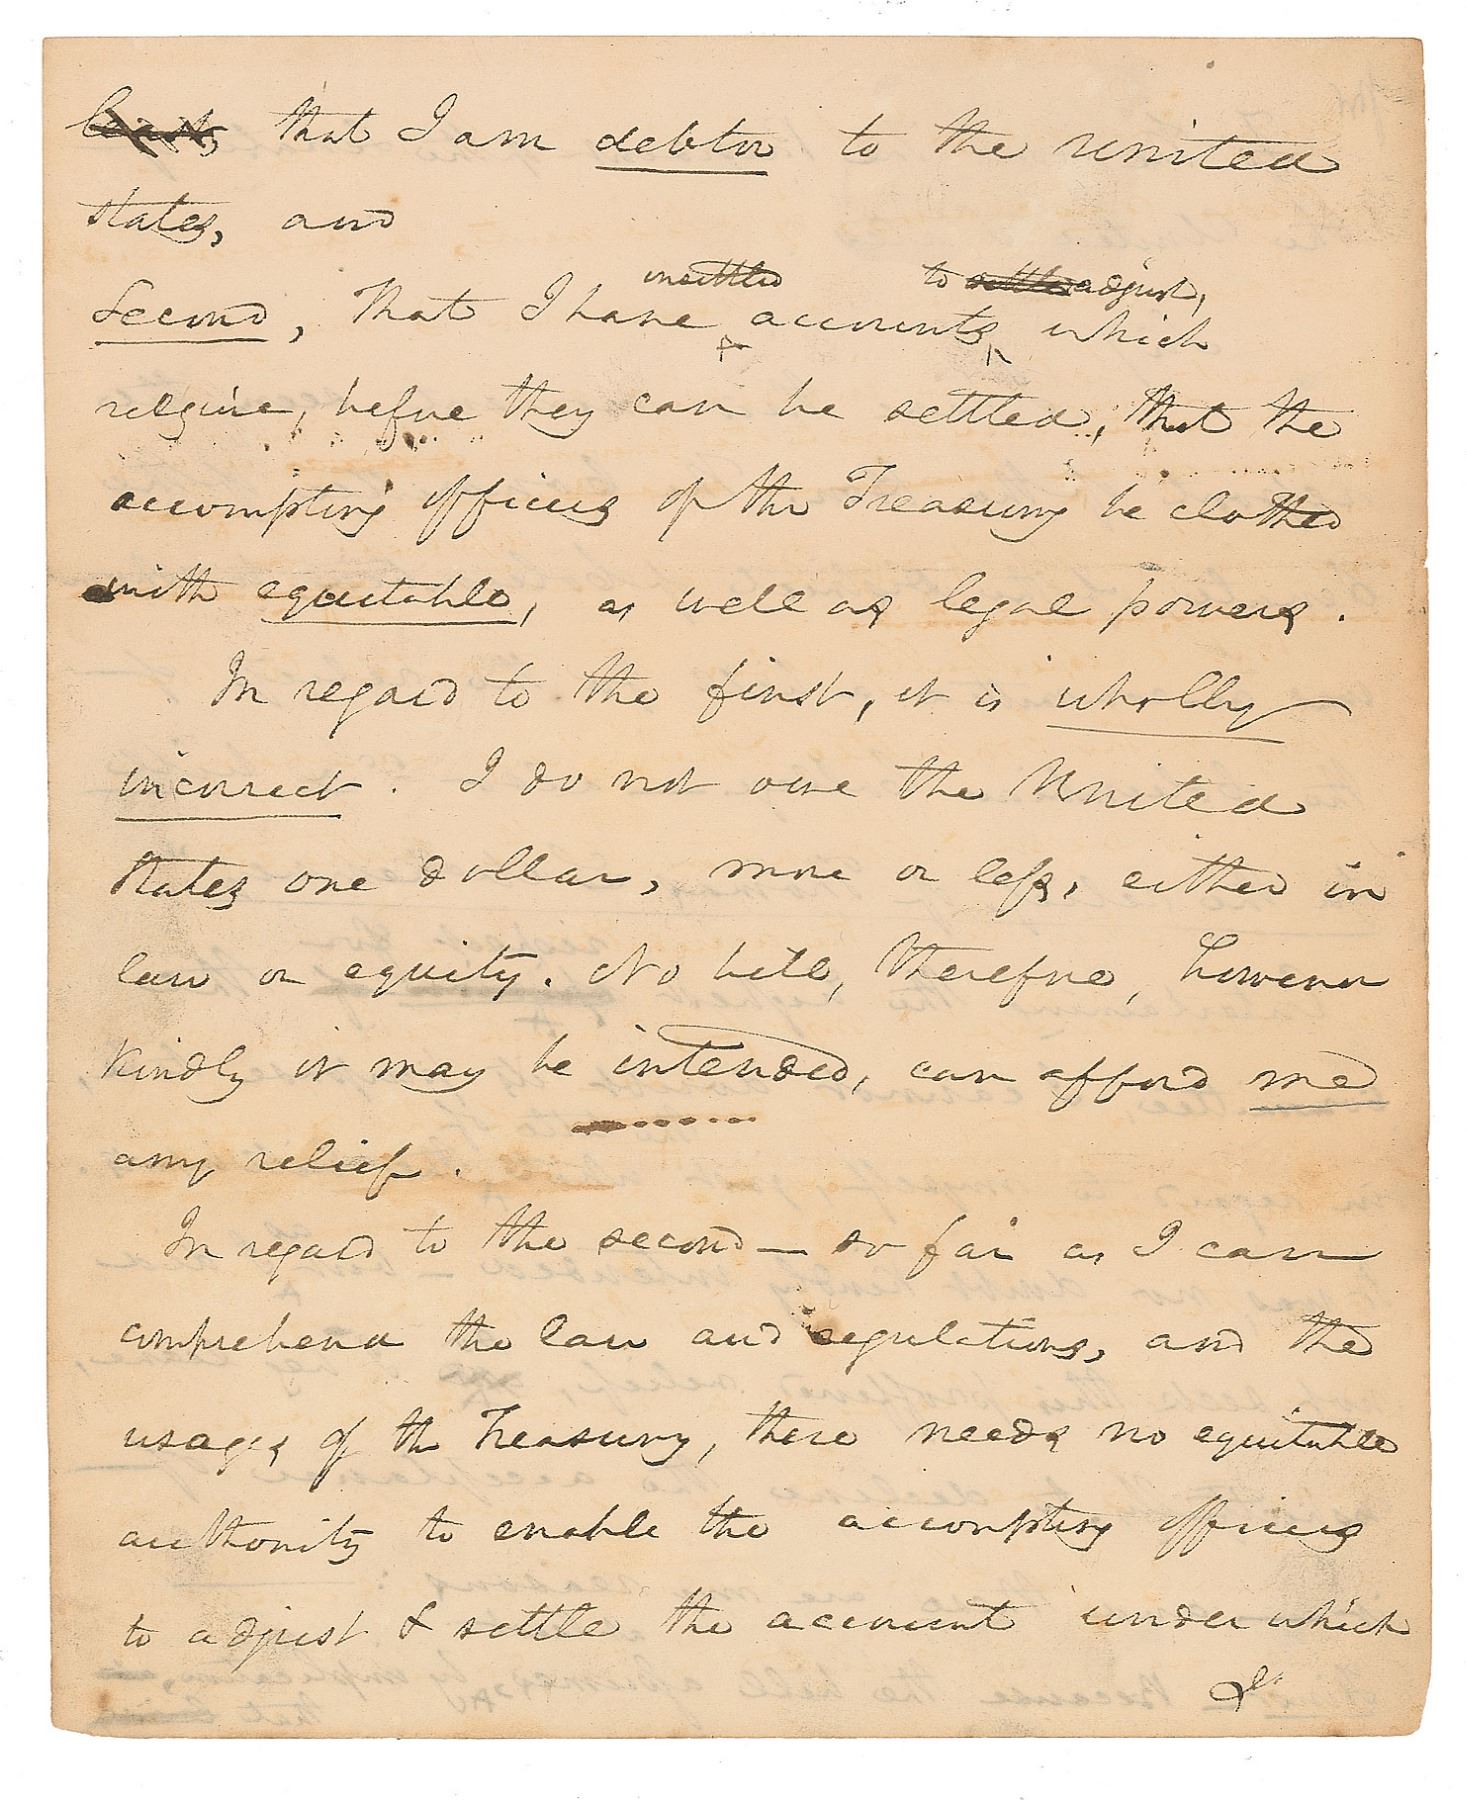 that I am debtor to the United
States, and
unsettled to settle adjust,
Second, That I have accounts, which
require, before they can be settled, that the
accompting officers of the Treasury be clothed
with equitable, as well as legal powers.
In regard to the first, it is wholly
incorrect. I do not owe the United
States one dollar, more or less, either in
law or equity. No bill, therefore, however
kindly it may be intended, can afford me
any relief.
In regard to the second — so far as I can
comprehend the law and regulations, and the
usages of the Treasury, there needs no equitable
authority to enable the accompting officers
to adjust & settle the account under which
I